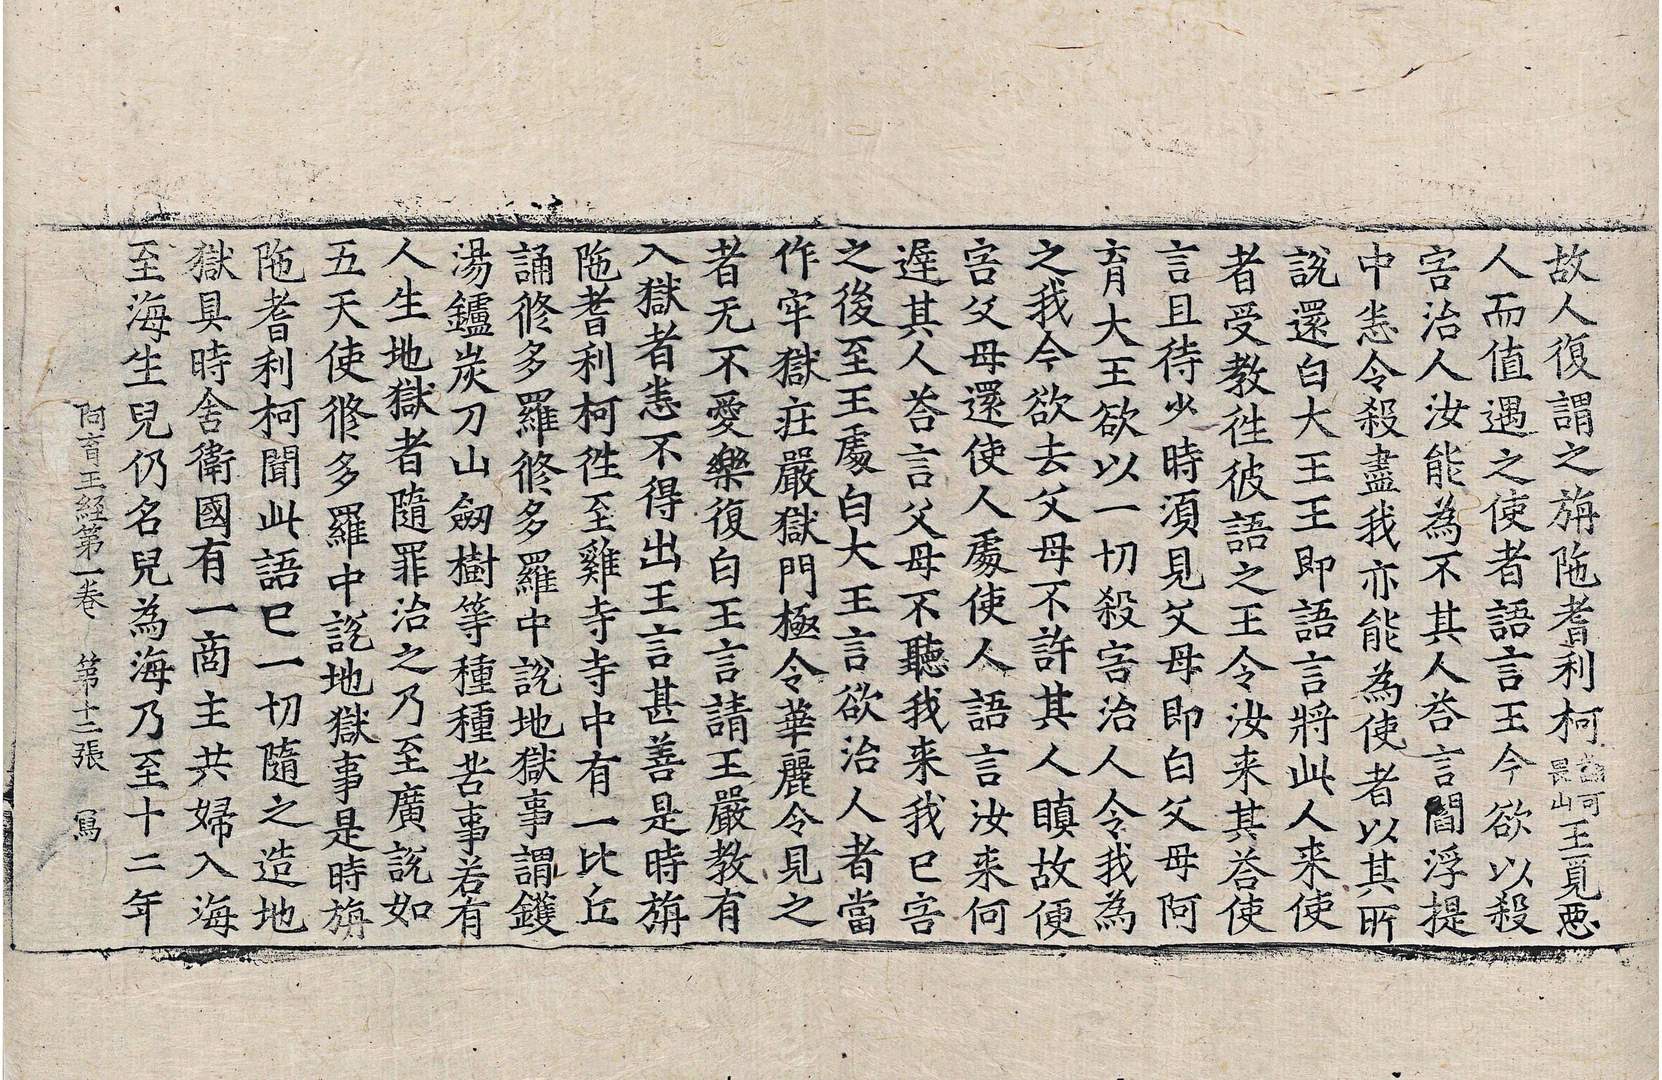 故人復謂之旃陁耆利柯耆利可畏山王覓惡
人而值遇之使者語言王今欲以殺
害治人汝能為不其人答言閻浮提
中恙令殺盡我亦能為使者以其所
說還白大王王即語言將此人来使
者受教徃彼語之王令汝来其答使
言且待少時須見父母即白父母阿
育大王欲以一切殺害治人令我為
之我今欲去父母不許其人瞋故便
害父母還使人處使人語言汝来何
遅其人答言父母不聽我来我已害
之後至王處白大王言欲治人者當
作牢獄莊嚴獄門極令華麗令見之
者无不愛樂復白王言請王嚴教有
入獄者恙不得出王言甚善是時旃
陁耆利柯徃至雞寺寺中有一比丘
誦修多羅修多羅中說地獄事謂鑊
湯鑪炭刀山劒樹等種種苦事若有
人生地獄者隨罪治之乃至廣說如
五天使修多羅中說地獄事是時旃
陁耆利柯聞此語已一切隨之造地
獄具時舍衛國有一商主共婦入海
至海生兒仍名兒為海乃至十二年
阿育王経第一卷 第十二張 寫